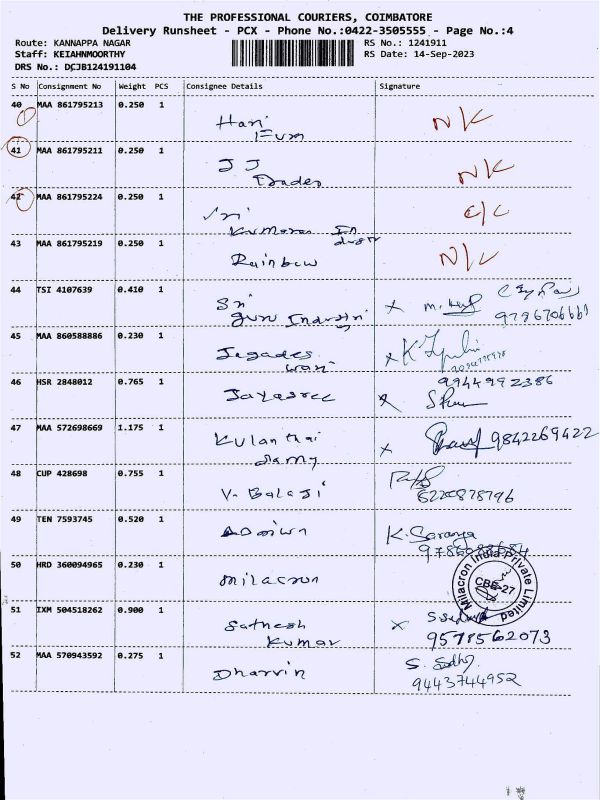 THE PROFESSIONAL COURIERS, COIMBATORE
Delivery Runsheet - PCX - Phone No.:0422-3505555 - Page No.:4
Route: KANNAPPA NAGAR
RS No.: 1241911
Staff: KEIAHNMOORTHY
RS Date: 14-Sep-2023
DRS No.: DCJB124191104
S No Consignment No Weight PCS Consignee Details Signature
40 MAA 861795213 0.250 1
Hari
Fum
N/C
41 MAA 861795211 0.250 1
J J
Trades
N/C
42 MAA 861795224 0.250 1
Sri
Kumaran In
dustr
C/C
43 MAA 861795219 0.250 1
Rainbow
N/C
44 TSI 4107639 0.410 1
Sri
guru Industri
X
9796706661
45 MAA 860588886 0.230 1
Jegades
wari
X
46 HSR 2848012 0.765 1
Jayasree
9944992386
X
47 MAA 572698669 1.175 1
Kulanthai
samy
X
9842269422
48 CUP 428698 0.755 1
V. Balaji
6220878796
49 TEN 7593745 0.520 1
K. Saranya
50 HRD 360094965 0.230 1
milacron
Milacron India Private Limited
CBE-27
51 IXM 504518262 0.900 1
Sathesh
Kumar
X
9578562073
52 MAA 570943592 0.275 1
Dharvin
9443744952